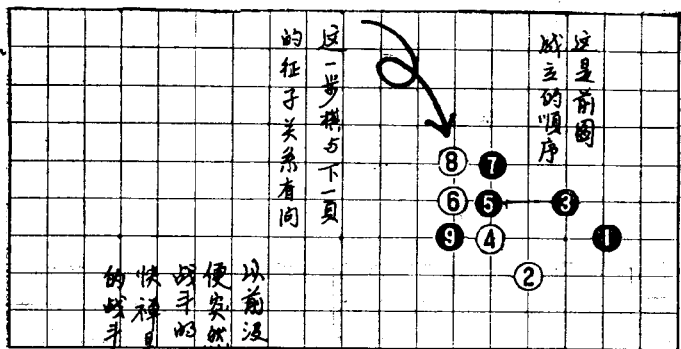 这是前图
成立的顺序
这一步棋与下一页
的征子关系有问
⑧ ❼
⑥ ❺ ❸
❾ ④ ❶
②
以前没
便突然
战斗的
快
的战斗